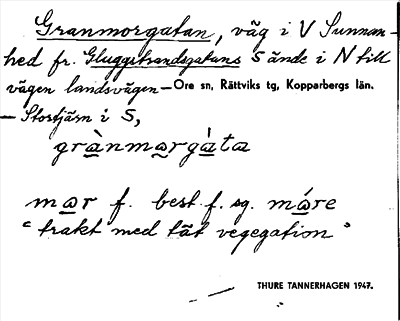 Granmorgatan, väg i V Sunnan-
hed fr. Gluggstrandsgatans S ände i N till
vägen landsvägen — Ore sn, Rättviks tg, Kopparbergs län.
— Stortjärn i S,
grànmargàta
mar f. best f. sg. máre
"trakt med tät vegegation"
THURE TANNERHAGEN 1947.